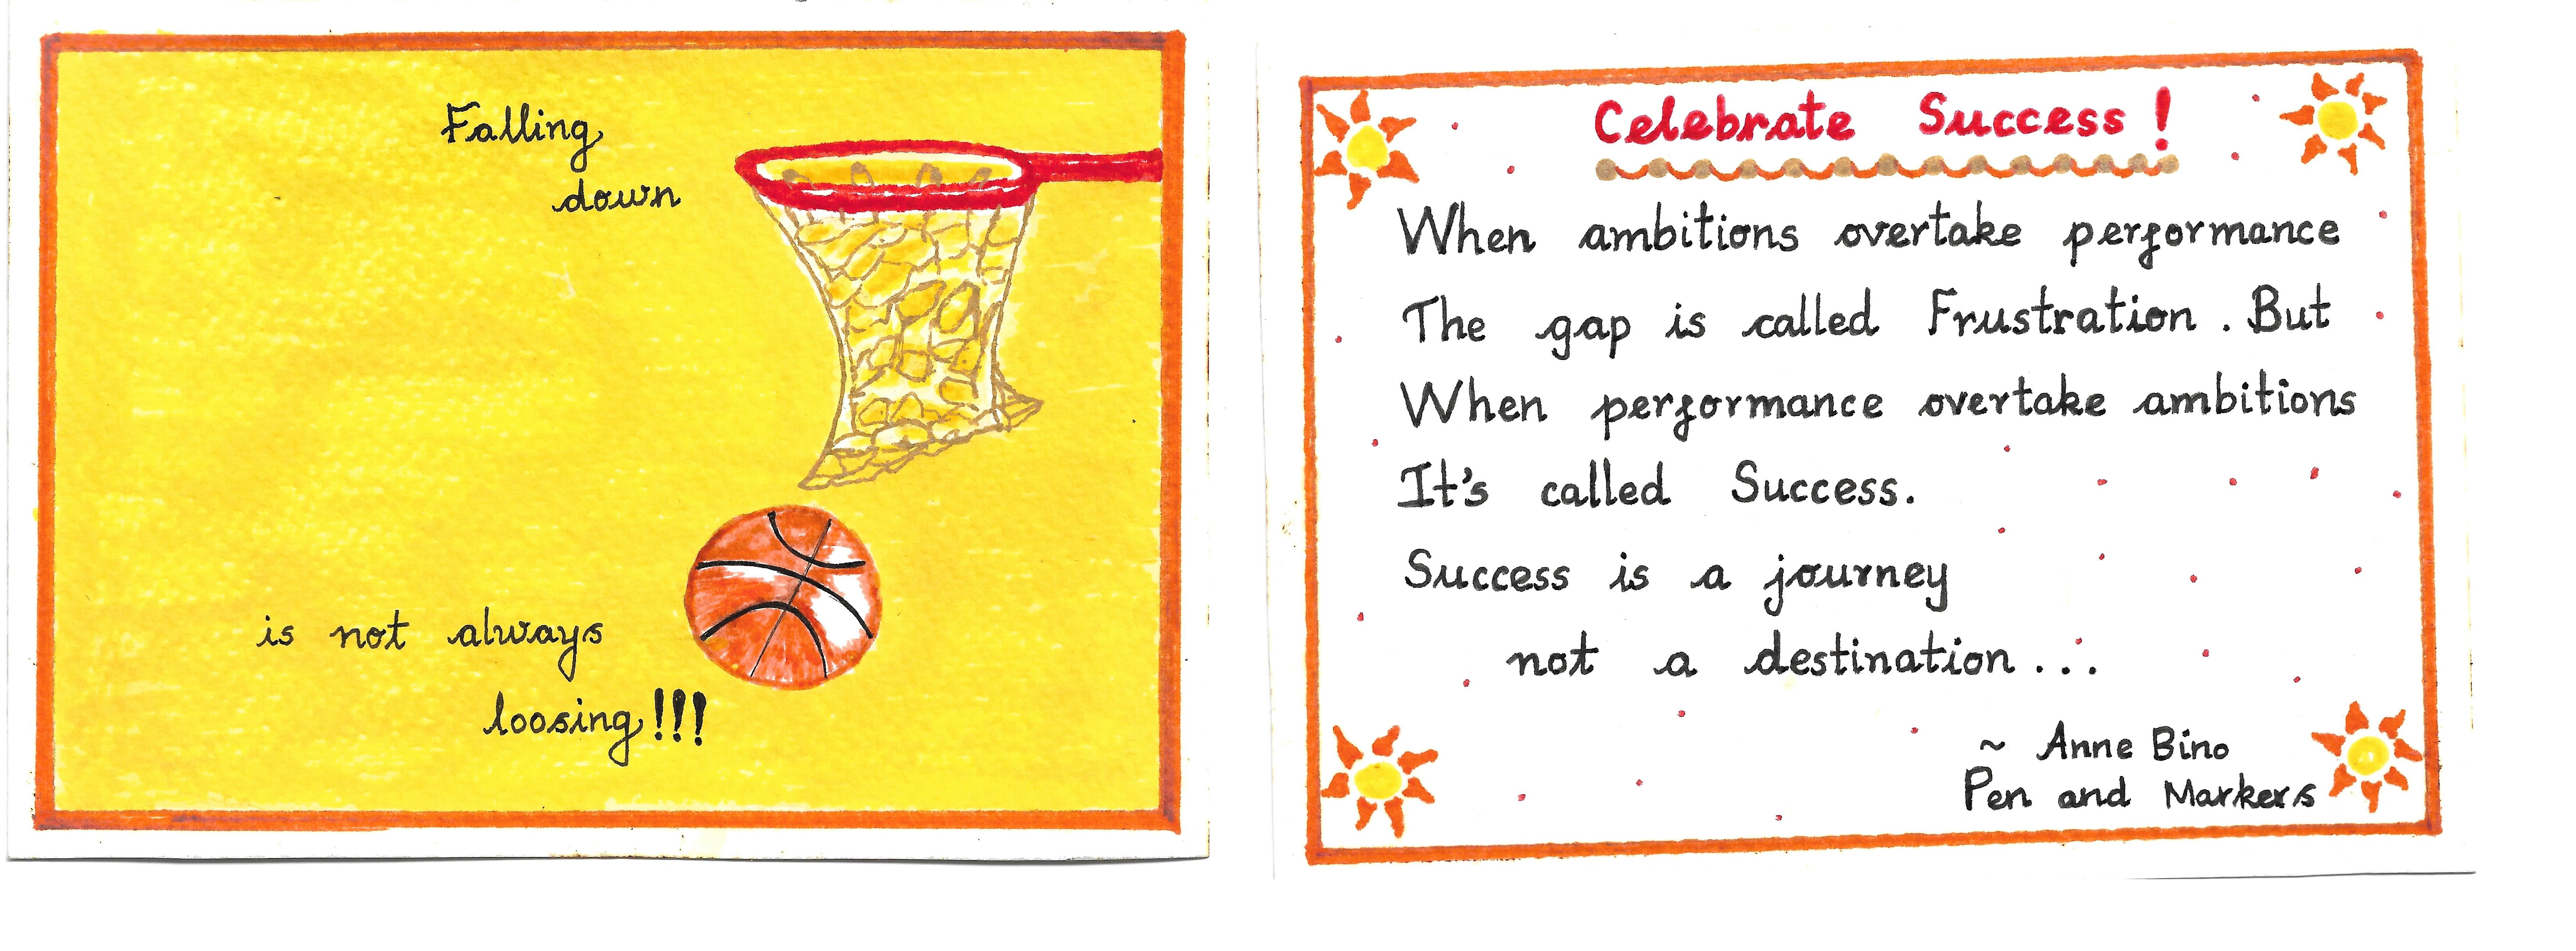 Falling
down
is not always
loosing!!!
Celebrate Success!
When ambitions overtake performance
The gap is called Frustration. But
When performance overtake ambitions
It's called Success.
Success is a journey
not a destination...
~ Anne Bino
Pen and Markers